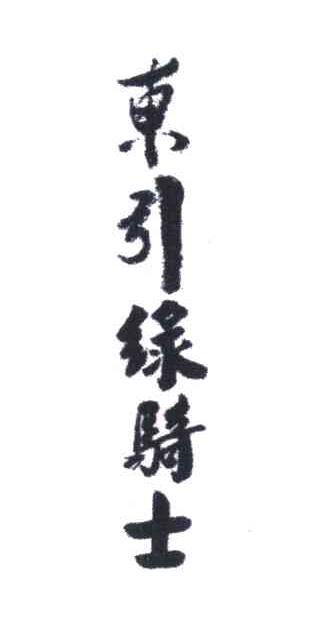 東引綠騎士